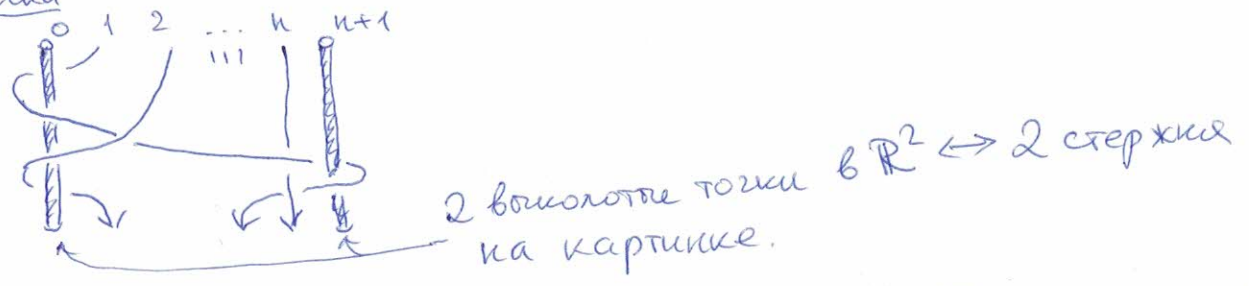 0 1 2 ... n n+1
2 выколотые точки в ℝ² ↔ 2 стержня
на картинке.